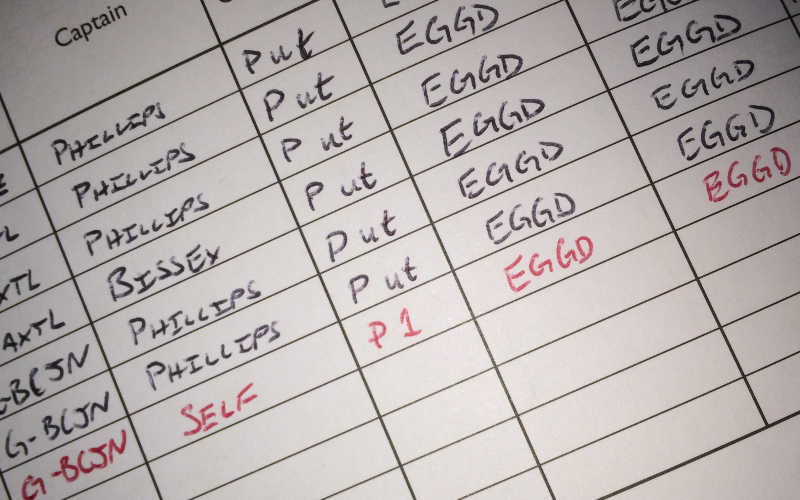 Captain
PHILLIPS Put
L PHILLIPS Put EGGD
XTL PHILLIPS Put EGGD EGGD
AXTL BISSEX Put EGGD EGGD
-BCJN PHILLIPS Put EGGD EGGD
G-BCJN PHILLIPS Put EGGD EGGD
G-BCJN SELF P1 EGGD EGGD